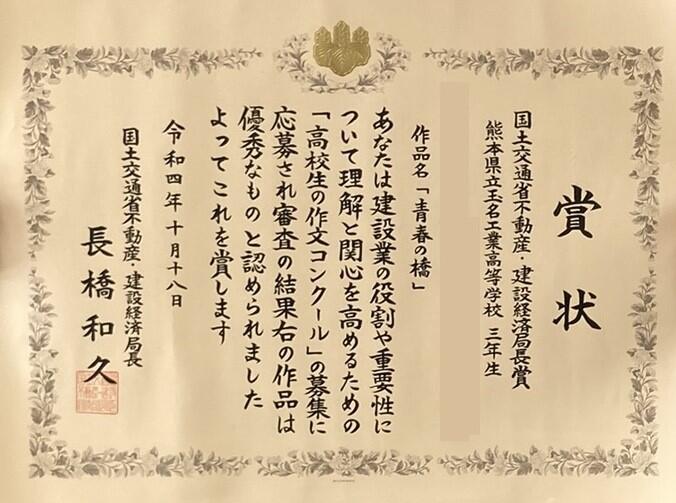 賞状
国土交通省不動産・建設経済局長賞
熊本県立玉名工業高等学校 三年生
作品名「青春の橋」
あなたは建設業の役割や重要性に
ついて理解と関心を高めるための
「高校生の作文コンクール」の募集に
応募され審査の結果右の作品は
優秀なものと認められました
よってこれを賞します
令和四年十月十八日
国土交通省不動産・建設経済局長
長橋和久